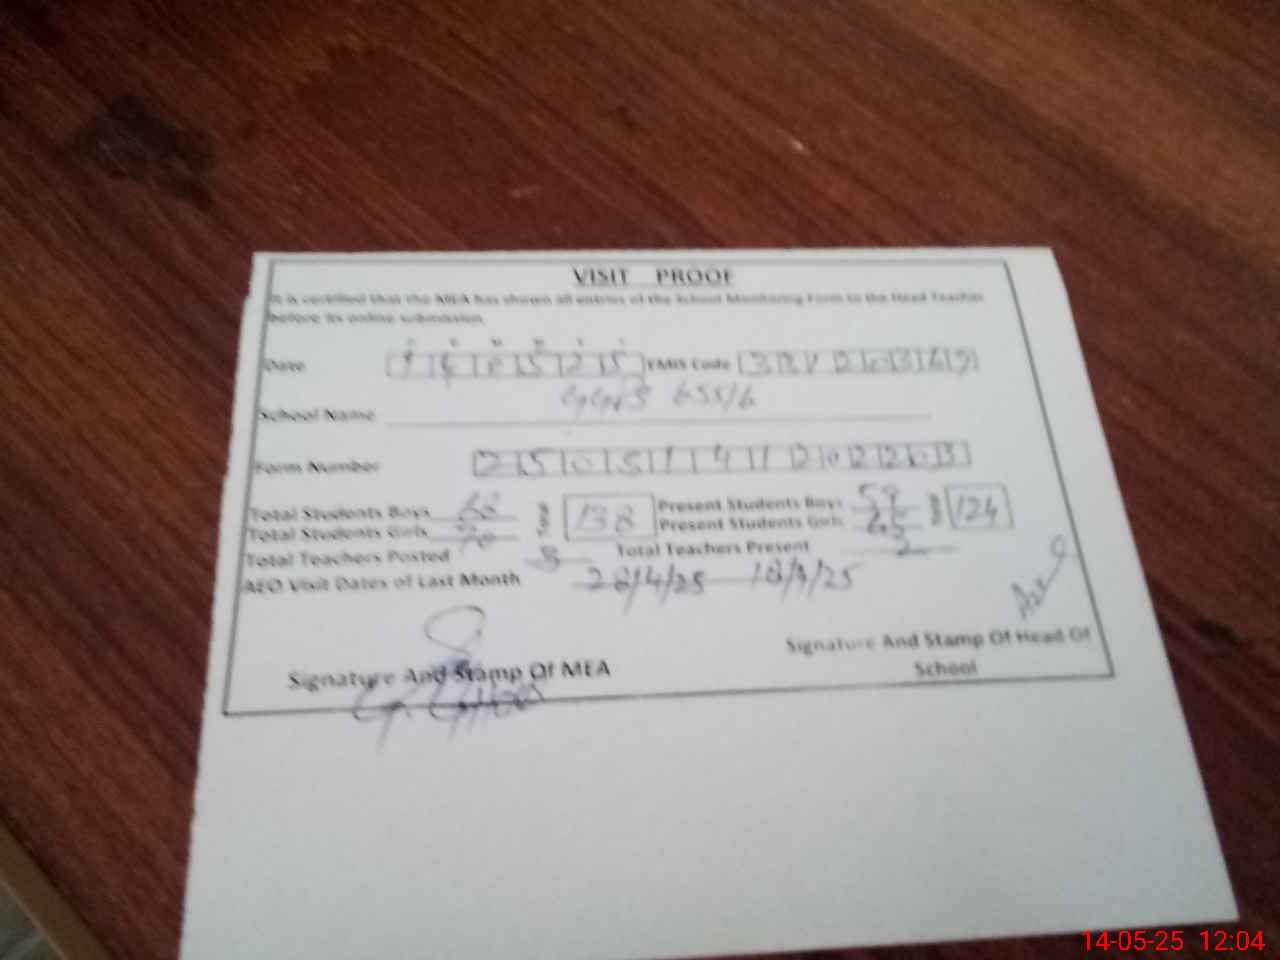 VISIT PROOF
It is certified that the MEA has shown all entries of the School Monitoring Form to the Head Teacher
before its online submission.
D D M M Y Y
Date 1 4 0 5 2 5 EMIS Code
School Name 655/6
Form Number 2 5 0 5 1 4 1 2 0 2 2 0 3
Total Students Boys 68 138 Present Students Boys 59 124
Total Students Girls 70 Present Students Girls 65
Total Teachers Posted 3 Total Teachers Present 2
AEO Visit Dates of Last Month 28/4/25
Signature And Stamp Of MEA
Signature And Stamp Of Head Of
School
14-05-25 12:04